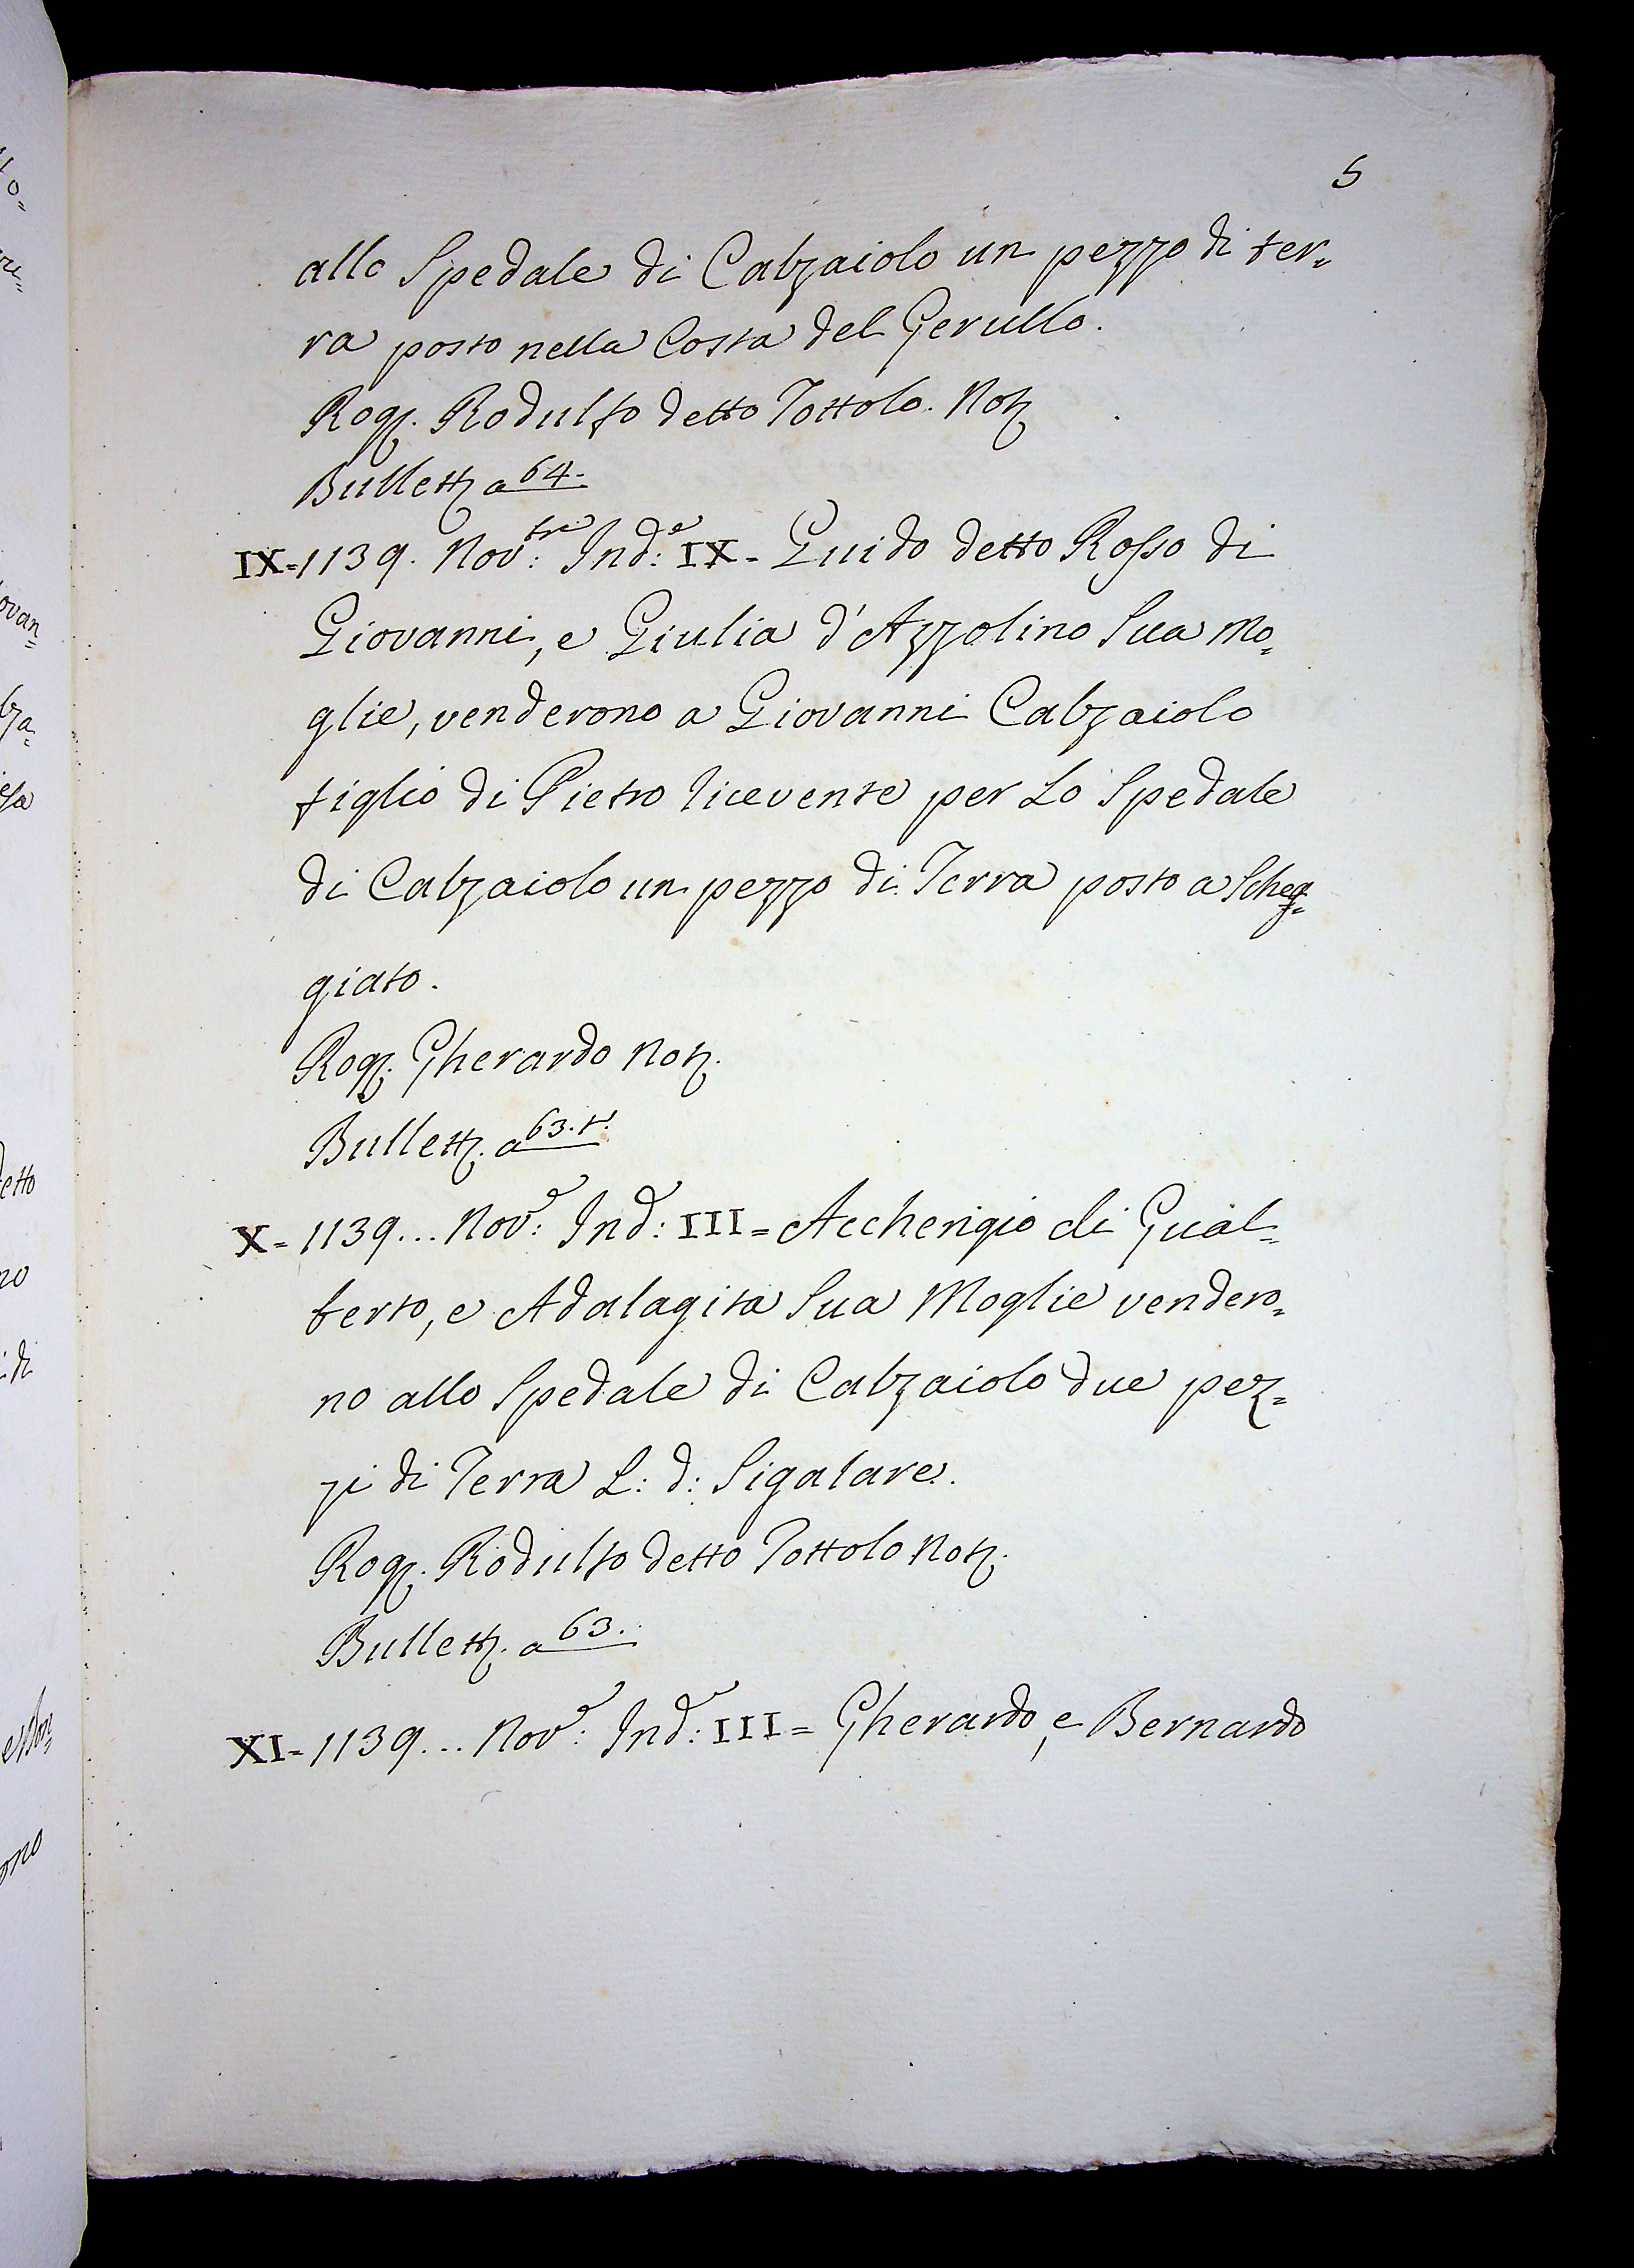 5
allo Spedale di Calzaiolo un pezzo di ter=
ra posto nella Costa del Gerullo.
Rog. Rodulfo detto Tottolo. Not.
Bullett. a 64.
IX=1139. Nov:bre Ind:e IX= Guido detto Rosso di
Giovanni, e Giulia d'Azzolino Sua Mo=
glie, venderono a Giovanni Calzaiolo
figlio di Pietro ricevente per Lo Spedale
di Calzaiolo un pezzo di Terra posto a Scheg=
giato.
Rog. Gherardo Not.
Bullett. a 63.t.
X= 1139... Nov:e Ind: III= Accherigio di Gual=
berto, e Adalagita Sua Moglie vendero=
no allo Spedale di Calzaiolo due pez=
zi di Terra L: d: Sigalare.
Rog. Rodulfo detto Tottolo Not.
Bullett. a 63.
XI=1139... Nov:e Ind:e III= Gherardo, e Bernardo